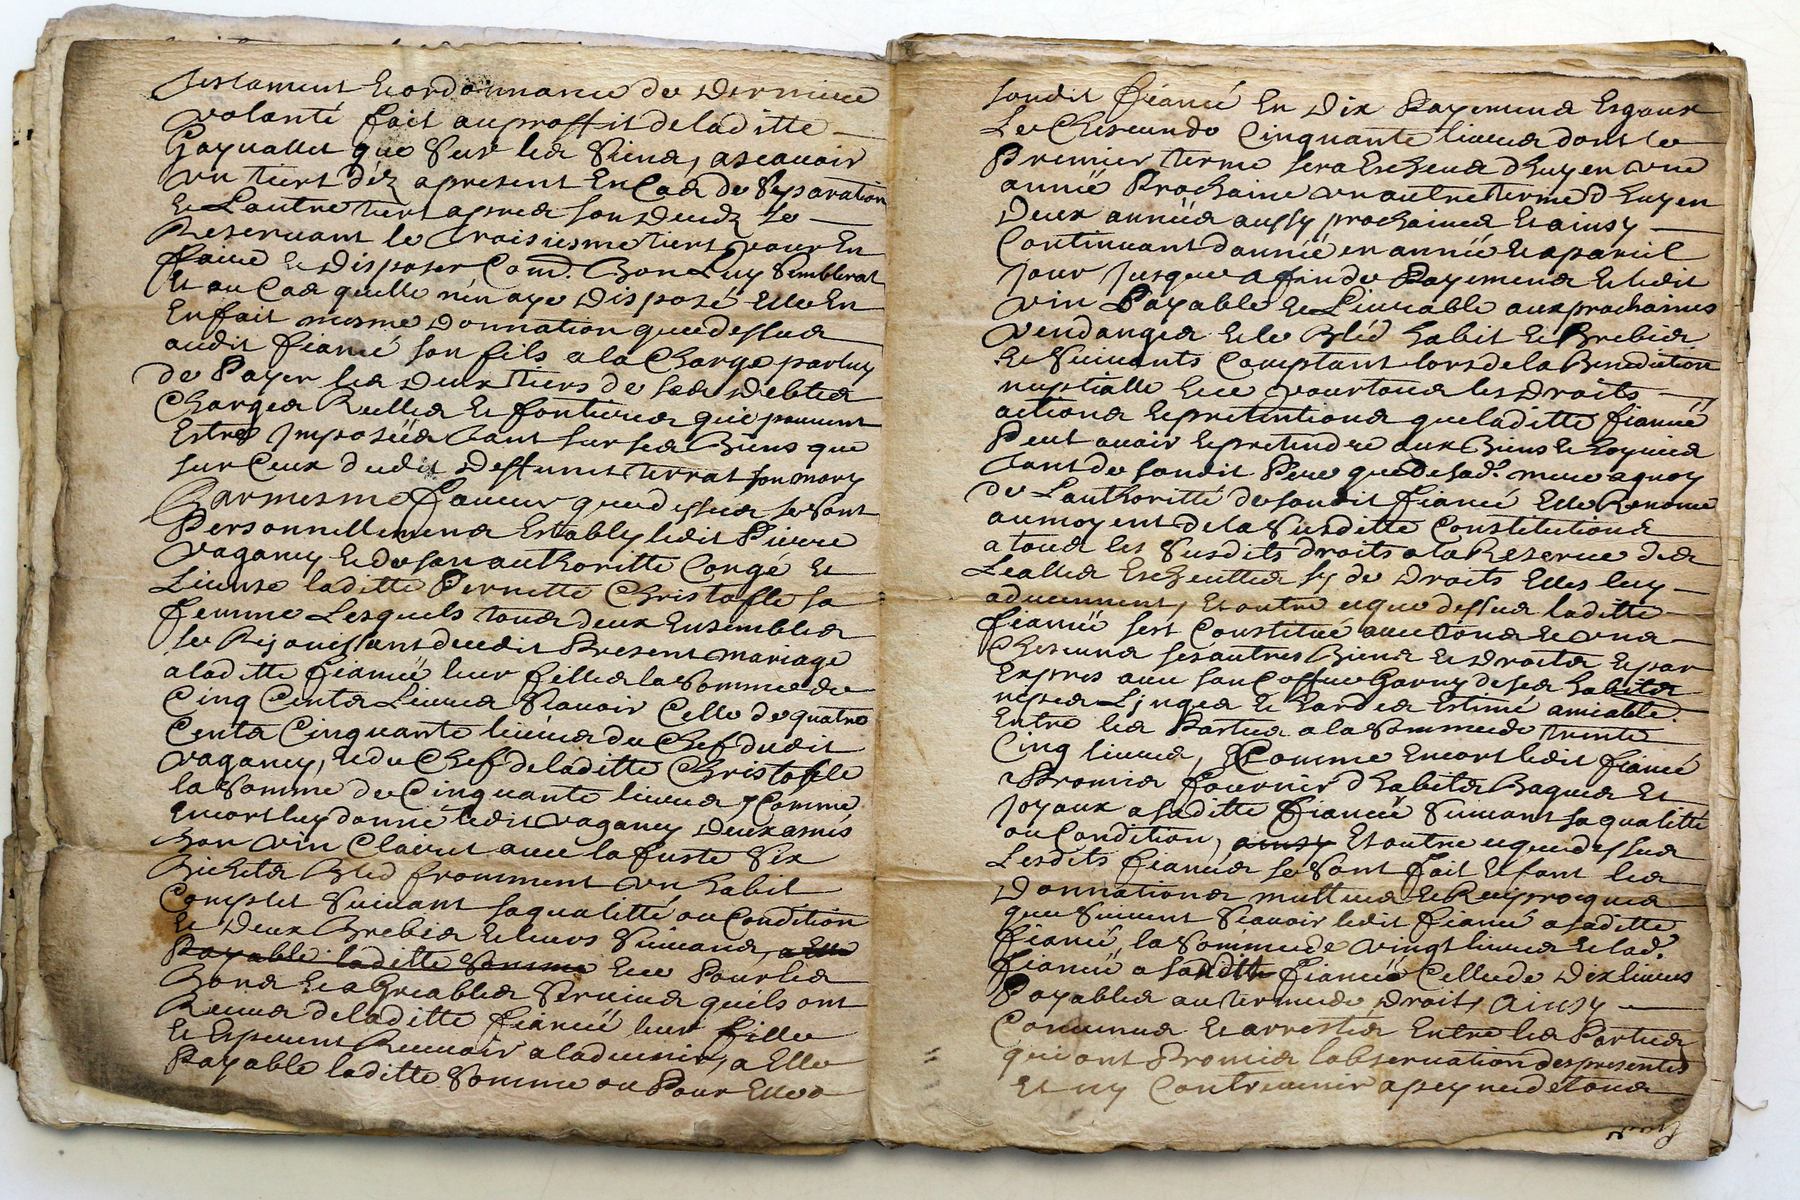 Testament et ordonnance de derniere
volanté fait au proffit de laditte
Gaynallet que sur les siens, ascavoir
un tiert dez apresent en cas de separation
et Lautre tiert apres son decedz se
Reservant le troisiesme tiert pour en
faire et disposer Com. Bon Luy semblerat
Et au Cas quelle n'en aye disposé Elle En
En fait mesme donnation que dessus
audit fiancé son fils a la charge par luy
de Payer les deux tiers de ses debtes
Charges Reelles et fontieres qui peuvent
Estres Imposées tant sur ses Biens que
sur ceux dudit deffunt terrat son mary
Par mesme faveur que dessus se sont
Personnellement Establys ledit Pierre
vaganey et de son authoritte Congé et
License laditte Pernette Christofle sa
femme Lesquels tous deux Ensembles
se Rejouissant dudit Present mariage
a laditte fiancée leur fille la somme de
Cinq Cents Livres scavoir Celle de quatre
Cents Cinquante livres du Chef dudit
vaganey, et du Chef de laditte Christofle
la somme de Cinquante livres, Comme
Encort luy donne ledit vaganey deux asnés
Bon vin Clairet avec la fuste six
Bichets Bled fromment un habit
Complet suivant sa qualitté ou Condition
et deux Brebis et leurs suivans, a Elle
Payable laditte somme Ece Pour les
Bons et agreables services quils ont
Receus de laditte fiancée leur fille
et Esperent Recevoir a ladvenir, a Elle
Payable laditte somme ou Pour Elle a
sondit fiancé En dix Payemens Esgaux
de Chescun de Cinquante livres dont le
Premier terme sera Escheus d'huy en une
année Prochaine un autre terme d'huy en
deux années aussy prochaines et ainsy
Continuant d'année en année et apareil
jour jusques a fin de Payemens et ledit
vin Payable et Livrable aux prochaines
vendanges et le Bled habit et Brebis
et suivants Comptant lors de la Benediction
nuptialle Ece pour tous les droits
actions et pretentions que laditte fiancée
Peut avoir et pretendre aux Biens et hoyries
tant de sondit Pere que de sad. mere a quoy
de L'authoritté de sondit fiancé Elle Renonce
au moyent de la susditte Constitutions
a tous les susdits droits a la Reserve des
Lealles Escheuttes sy de droits Elles luy
adviennent, Et outre ce que dessus laditte
fiancée sest Constitué avec tous et uns
Chescuns ses autres Biens et droits et par
Expres avec son Coffre Garny de ses habits
nipes Linges et hardes Estimé amiable.
Entre les Parties a la somme de trente
Cinq livres, Comme Encort ledit fiancé
Promis fournir d'habits Bagues Et
Joyaux a saditte fiancée suivant sa qualitté
ou Condition, ainsy Et outre ce que dessus
Lesdits fiancés se sont fait et font les
donnations mutues et Reciproques
que suivent scavoir ledit fiancé a saditte
fiancé, la somme de vingt livres et lad.
fiancée a saditte fiancée Celle de dix livres
Payables au terme de droit, ainsy
Convenus et arrestés Entre les Parties
qui ont Promis l'observation des presentes
Et ny Contrevenir a peyne de tous